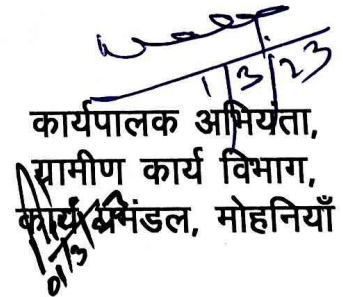 1/3/23
कार्यपालक अभियंता,
ग्रामीण कार्य विभाग,
कार्य प्रमंडल, मोहनियाँ
01/3/23